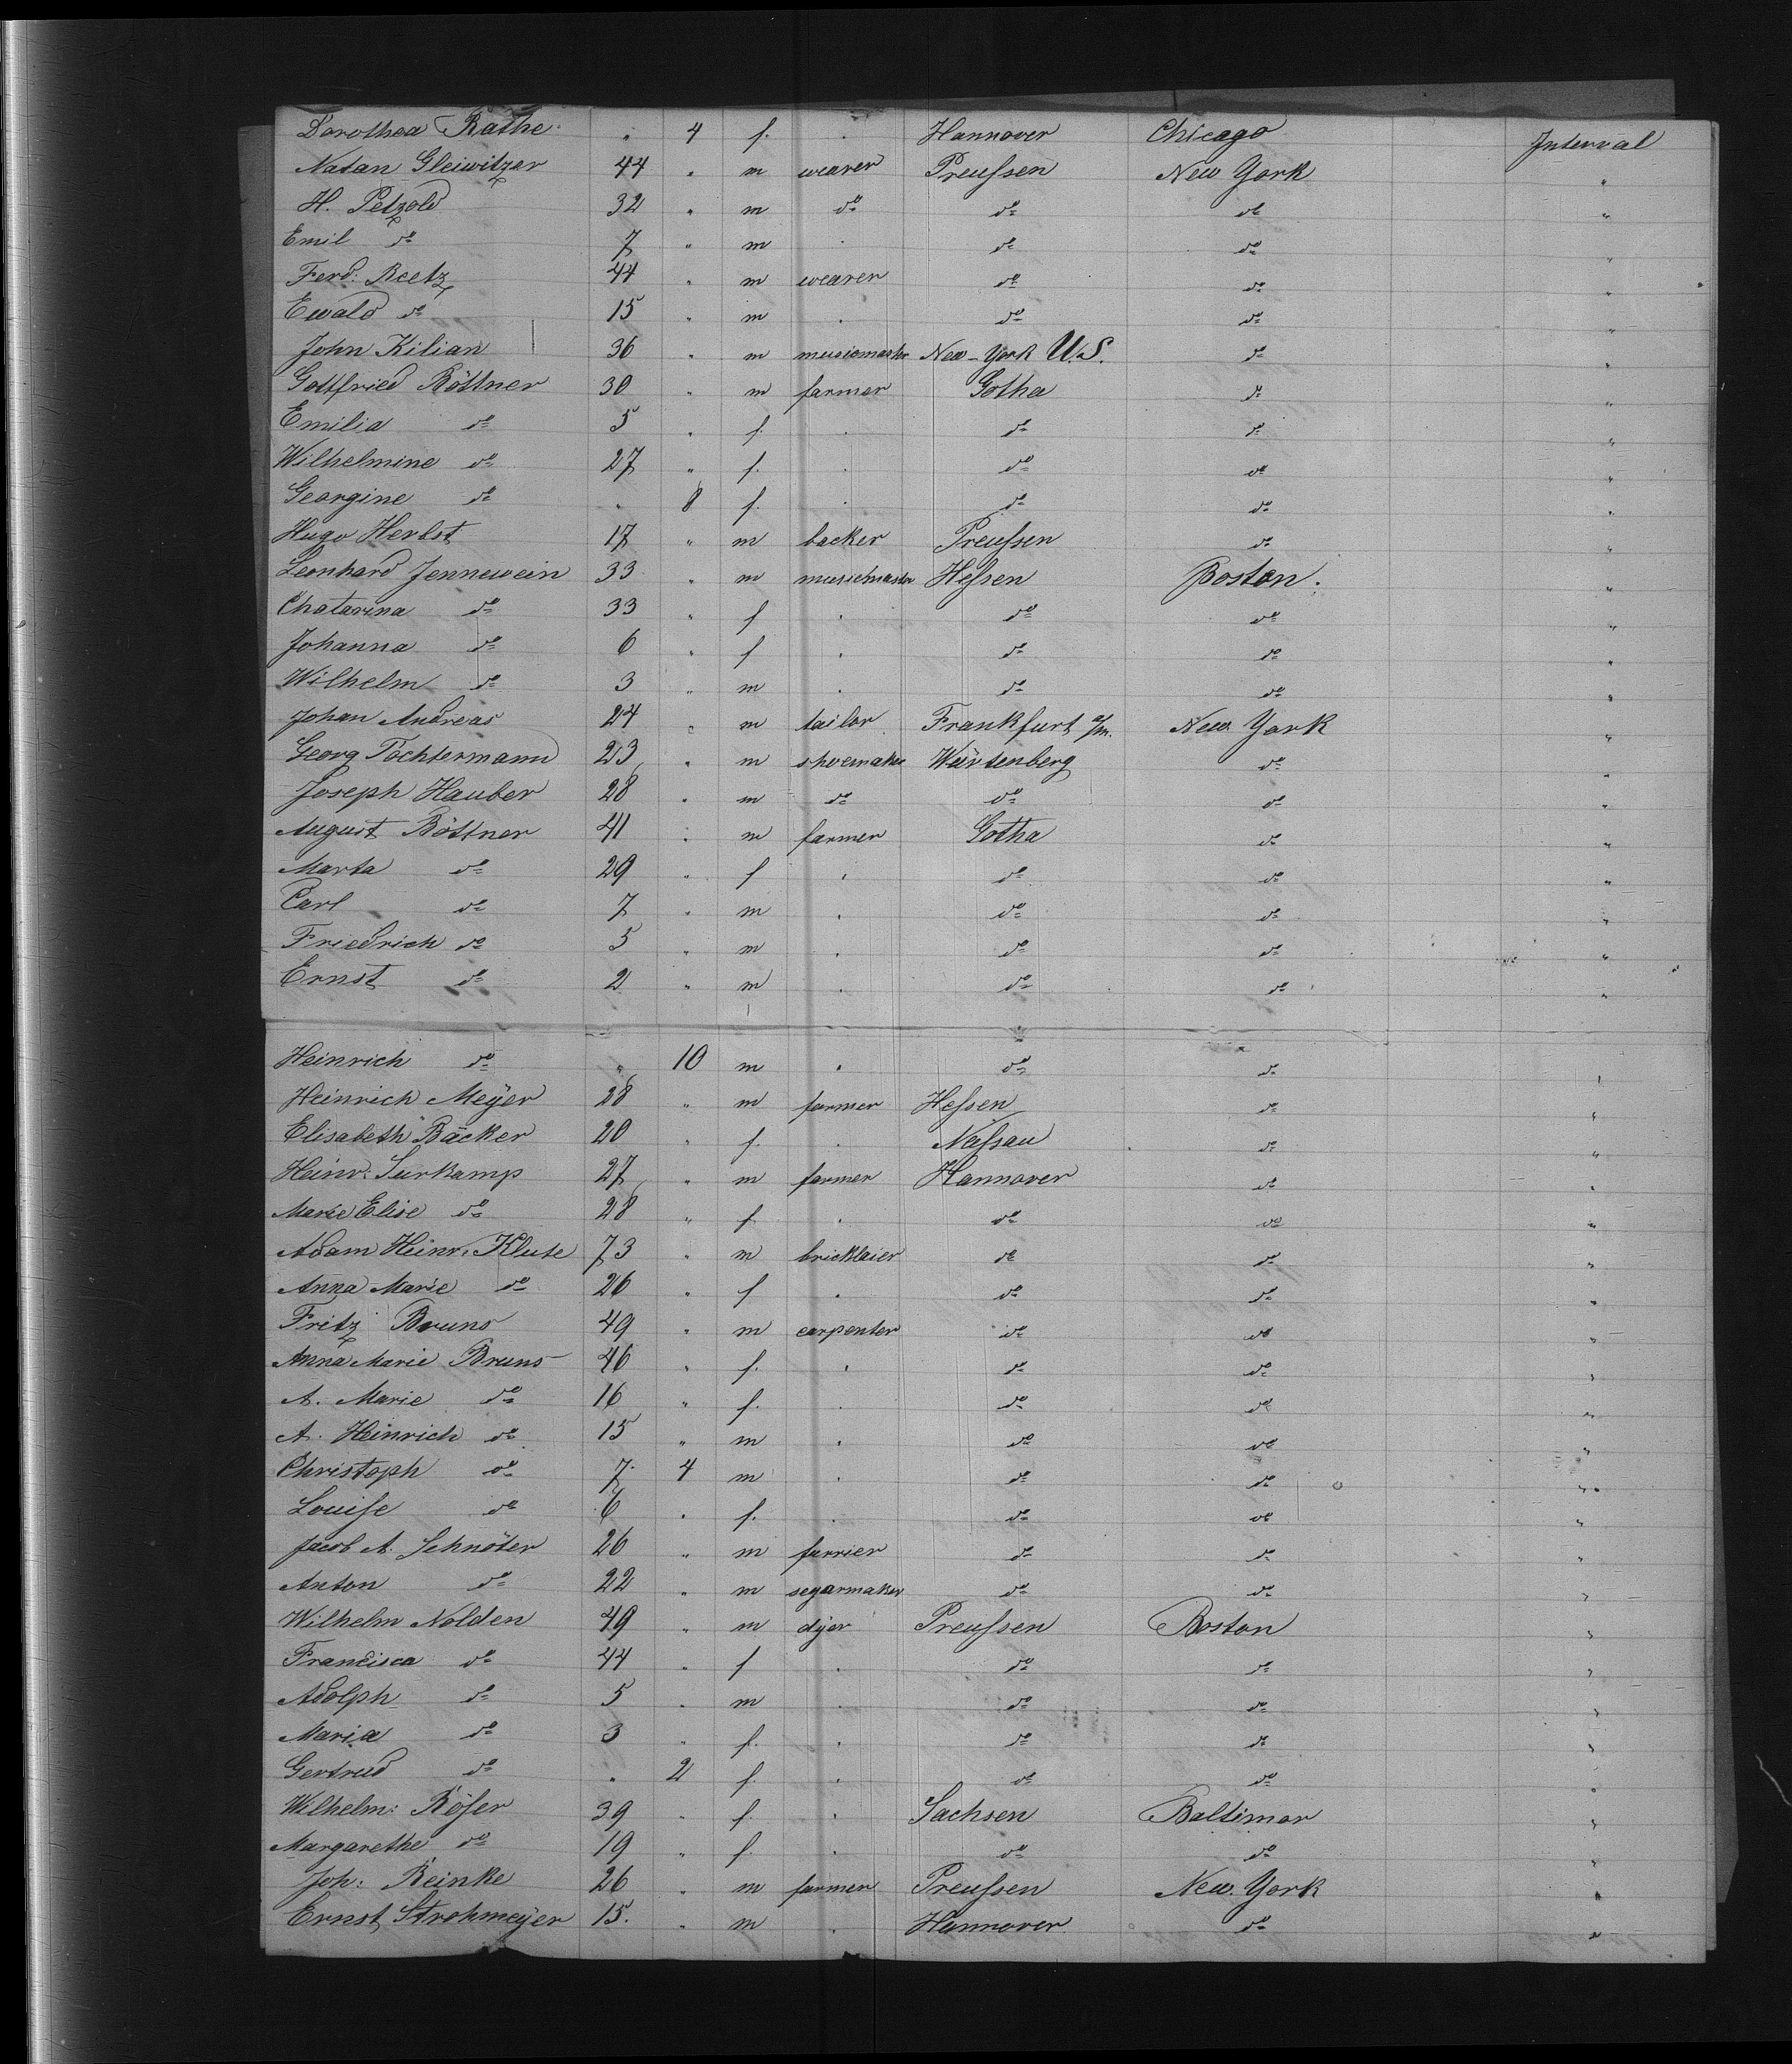 Dorothea Rathe " 4 f. . Hannover Chicago Interval
Natan Gleiwitzer 44 " m weaver Preußen New York "
H. Petzold 32 " m do do do "
Emil do 7 " m . do do "
Ferd: Reetz 44 " m weaver do do "
Ewald do 15 " m . do do "
John Kilian 36 " m musicmaster New-York U.S. do "
Gottfried Böttner 30 " m farmer Gotha do "
Emilia do 5 " f. . do do "
Wilhelmine do 27 " f. . do do "
Georgine do " 8 f. . do do "
Hugo Herbst 17 " m backer Preußen do "
Leonhard Jennewein 33 " m musicmaster Heßen Boston. "
Chatarina do 33 " f . do do "
Johanna do 6 " f . do do "
Wilhelm do 3 " m . do do "
Johan Andreas 24 " m tailor Frankfurt a/m. New York "
Georg Tochtermann 23 " m shoemaker Würtenberg do "
Joseph Hauber 28 " m do do do "
August Böttner 41 " m farmer Gotha do "
Marta do 29 " f . do do "
Carl do 7 " m . do do "
Friedrich do 5 " m . do do "
Ernst do 2 " m . do do "
Heinrich do " 10 m . do do "
Heinrich Meÿer 28 " m farmer Heßen do "
Elisabeth Bäcker 20 " f. . Naßau do "
Heinr: Surkamp 27 " m farmer Hannover do "
Marie Elise do 28 " f . do do "
Adam Heinr: Klute 73 " m bricklaier do do "
Anna Marie do 26 " f . do do "
Fritz Bruns 49 " m carpenter do do "
Anna Marie Bruns 46 " f. . do do "
A. Marie do 16 " f. . do do "
A. Heinrich do 15 " m . do do "
Christoph do 7 4 m . do do "
Louise do 6 " f. . do do "
Jacob A. Schnöter 26 " m furrier do do "
Anton do 22 " m segarmaker do do "
Wilhelm Nolden 49 " m dyer Preußen Boston "
Francisca do 44 " f . do do "
Adolph do 5 " m . do do "
Maria do 3 " f. . do do "
Gertrud do " 2 f. . do do "
Wilhelm: Röser 39 " f. . Sachsen Baltimor "
Margarethe do 19 " f. . do do "
Joh: Reinke 26 " m farmer Preußen New York "
Ernst Strohmeÿer 15. " m . Hannover do "